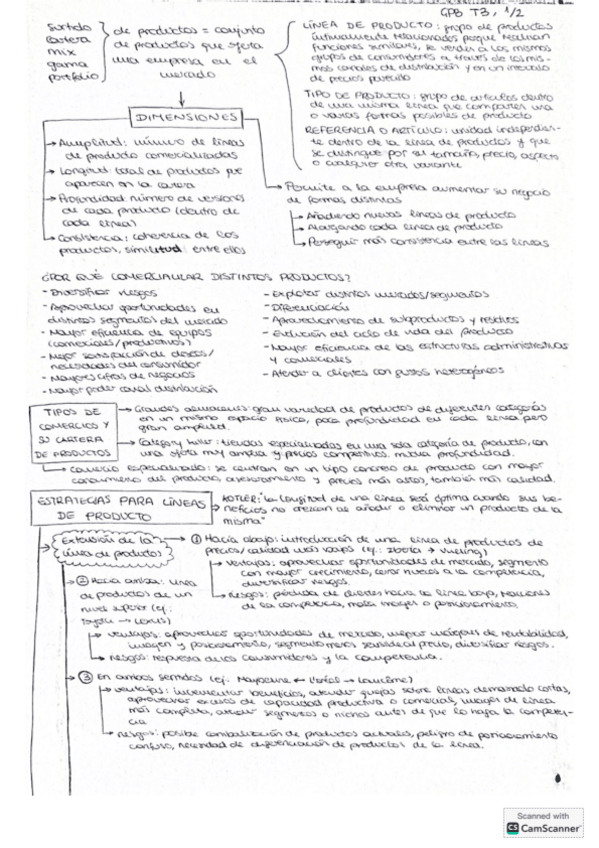 GPB T3, 1/2
Surtido
Cartera
mix
gama
portfolio
de productos = conjunto
de productos que oferta
una empresa en el
mercado
LÍNEA DE PRODUCTO: grupo de productos
íntimamente relacionados porque realizan
funciones similares, se venden a los mismos
grupos de consumidores a través de los mis-
mos canales de distribución y en un intervalo
de precios parecido
TIPO DE PRODUCTO: grupo de artículos dentro
de una misma línea que comparten una
o varias formas posibles de producto
REFERENCIA O ARTÍCULO: unidad independien-
te dentro de la línea de productos y que
se distingue por su tamaño, precio, aspecto
o cualquier otra variante
DIMENSIONES
→ Amplitud: número de líneas
de producto comercializadas
→ Longitud: total de productos que
aparecen en la cartera
→ Profundidad: número de versiones
de cada producto (dentro de
cada línea)
→ Consistencia: coherencia de los
productos, similitud entre ellos
→ Permite a la empresa aumentar su negocio
de formas distintas
→ Añadiendo nuevas líneas de producto
→ Alargando cada línea de producto
→ Perseguir más consistencia entre las líneas
¿POR QUÉ COMERCIALIZAR DISTINTOS PRODUCTOS?
- Diversificar riesgos
- Aprovechar oportunidades en
distintos segmentos del mercado
- Mayor eficiencia de equipos
(comerciales/productivos)
- Mejor satisfacción de deseos/
necesidades del consumidor
- Mayores cifras de negocios
- Mayor poder canal distribución
- Explotar distintos mercados/segmentos
- Diferenciación
- Aprovechamiento de subproductos y residuos
- Evolución del ciclo de vida del producto
- Mayor eficiencia de las estructuras administrativas
y comerciales
- Atender a clientes con gustos heterogéneos
TIPOS DE
COMERCIOS Y
SU CARTERA
DE PRODUCTOS
→ Grandes almacenes: gran variedad de productos de diferentes categorías
en un mismo espacio físico, poca profundidad en cada línea pero
gran amplitud.
→ Category killer: tiendas especializadas en una sola categoría de producto, con
una oferta muy amplia y precios competitivos. mucha profundidad.
→ Comercio especializado: se centran en un tipo concreto de producto con mayor
conocimiento del producto, asesoramiento y precios más altos, también más calidad.
ESTRATEGIAS PARA LÍNEAS
DE PRODUCTO
KOTLER: "la longitud de una línea será óptima cuando sus be-
neficios no crezcan al añadir o eliminar un producto de la
misma"
Extensión de la
línea de productos
① Hacia abajo: introducción de una línea de productos de
precios/calidad más bajos (ej.: Iberia → Vueling)
→ Ventajas: aprovechar oportunidades de mercado, segmento
con mayor crecimiento, cerrar huecos a la competencia,
diversificar riesgos.
→ Riesgos: pérdida de clientes hacia la línea baja, reacciones
de la competencia, mala imagen o posicionamiento.
② Hacia arriba: línea
de productos de un
nivel superior (ej.:
Toyota → Lexus)
→ Ventajas: aprovechar oportunidades de mercado, mejorar márgenes de rentabilidad,
imagen y posicionamiento, segmento menos sensible al precio, diversificar riesgos.
→ Riesgos: respuesta de los consumidores y la competencia.
③ En ambos sentidos (ej.: Maybelline ← L'oréal → Lancôme)
→ Ventajas: incrementar beneficios, atender quejas sobre líneas demasiado cortas,
aprovechar exceso de capacidad productiva o comercial, imagen de línea
más completa, atraer segmentos o nichos antes de que lo haga la competen-
cia
→ Riesgos: posible canibalización de productos actuales, peligro de posicionamiento
confuso, necesidad de diferenciación de productos de la línea.
Scanned with
CS CamScanner